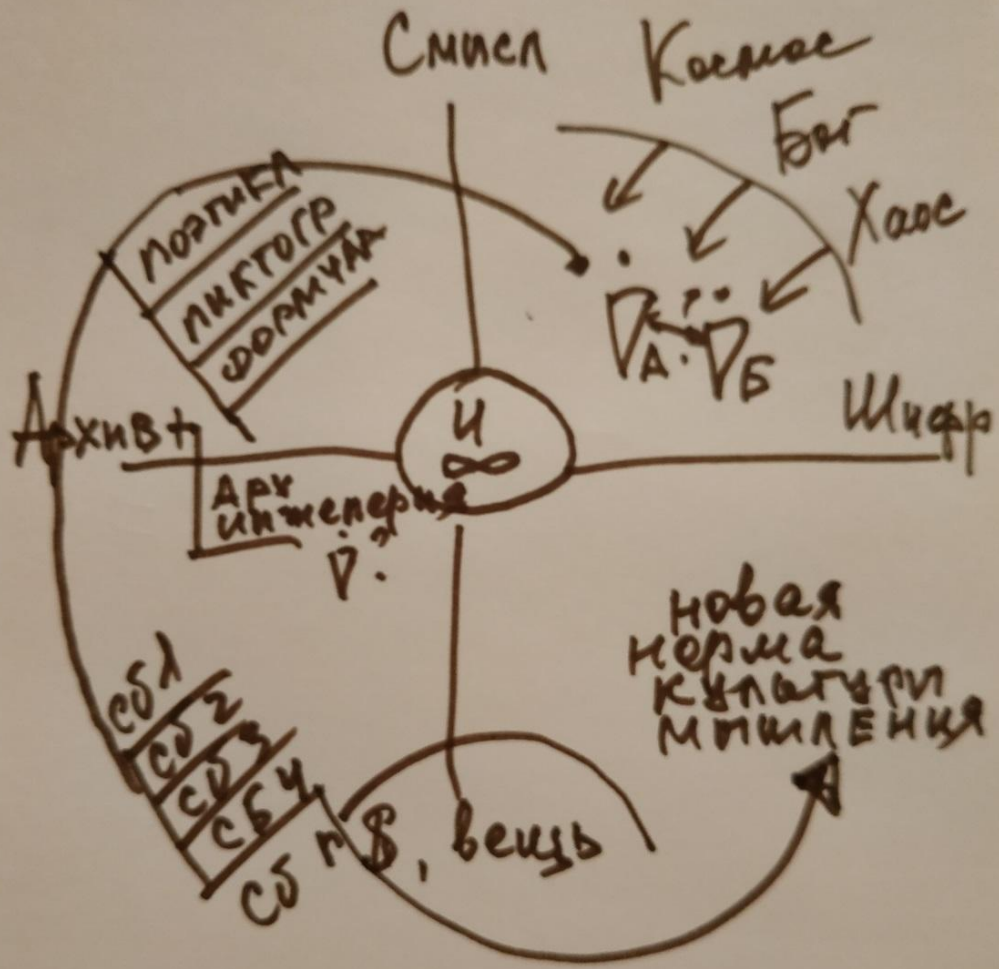 Смысл
Космос
Бог
Хаос
поэтика
пиктогр
формула
? ..
А. Б
Архив +
И
∞
Шифр
Арх
инженерия
?
новая
норма
культуры
мышления
сб 1
сб 2
сб 3
сб 4
сб n
$, вещь